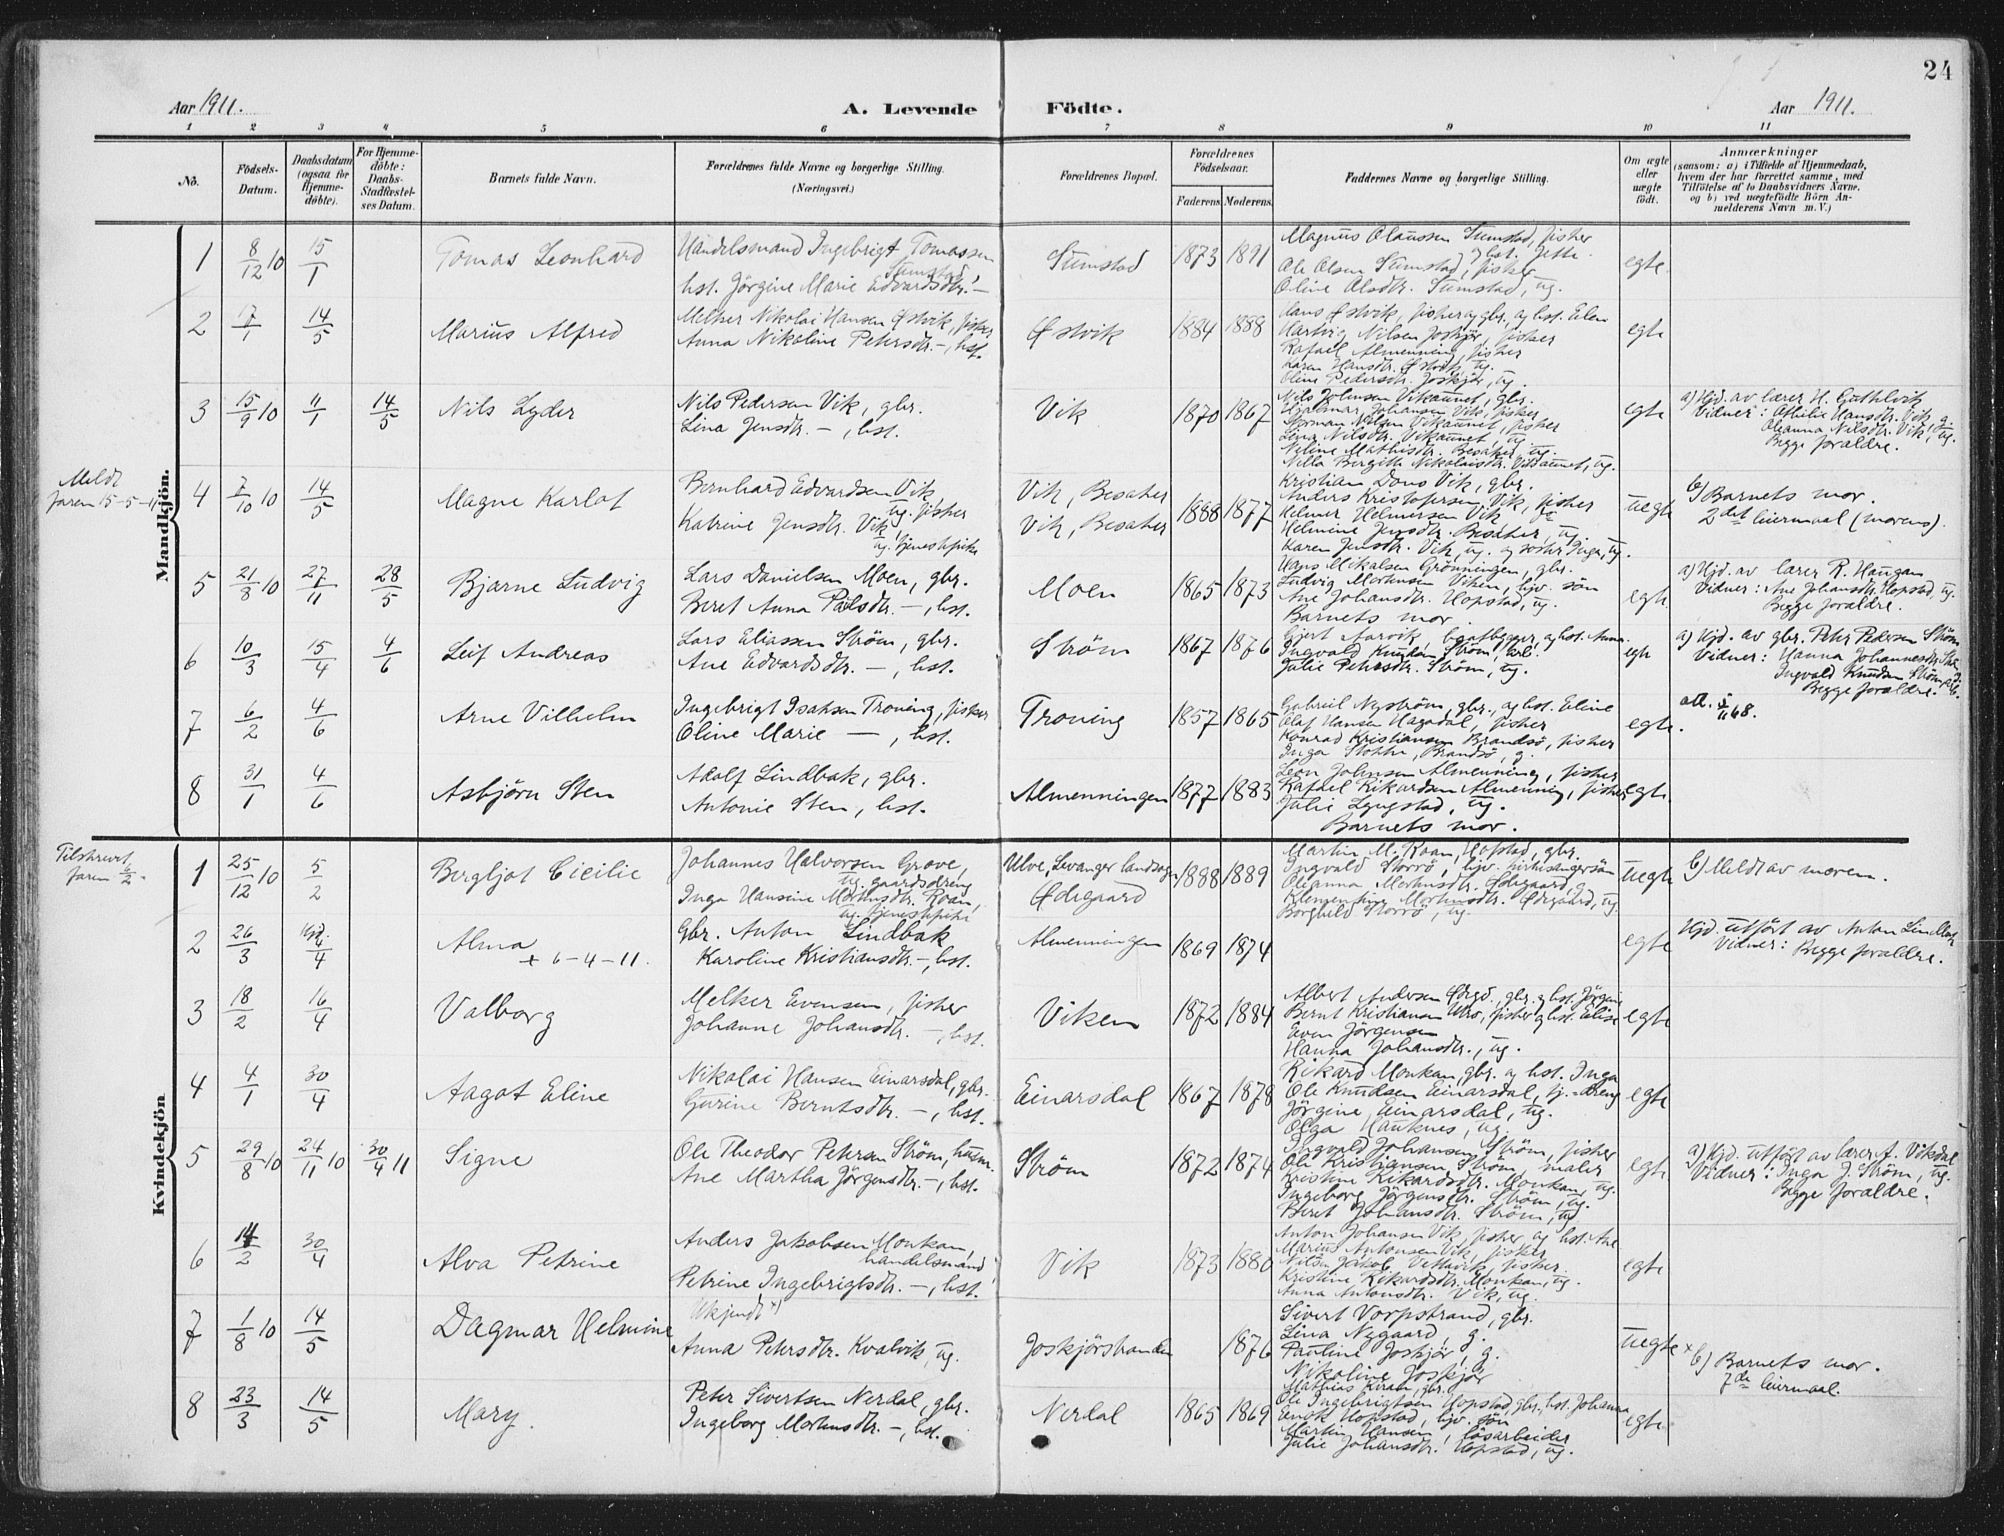 24
Aar 1911.
A. Levende Födte.
Aar 1911.
1 2 3 4 5 6 7 8 9 10 11
No.
Födsels-Datum.
Daabsdatum (ogsaa for Hjemme-döbte).
For Hjemme-döbte: Daabs-Stadfæstel-ses Datum.
Barnets fulde Navn.
Forældrenes fulde Navne og borgerlige Stilling.
(Næringsvei.)
Forældrenes Bopæl.
Forældrenes Födselsaar.
Faderens. Moderens.
Faddernes Navne og borgerlige Stilling.
Om ægte eller uægte födt.
Anmærkninger
(saasom: a) i Tilfælde af Hjemmedaab,
hvem der har forrettet samme, med
Tilföielse af to Daabsvidners Navne,
og b) ved uægtefödte Börn An-
melderens Navn m. V.)
Mandkjön.
1 8/12 10 15/1 Tomas Leonhard
Handelsmand Ingebrigt Tomassen
Sumstad
hst. Jörgine Marie Edvardsdtr. —
Sumstad 1873 1891
Magnus Olaussen Sumstad, fisher
og hst. Jette.
Ole Olsen Sumstad, fisher
Oline Olsdtr. Sumstad, ug.
egte.
2 14/5 Marius Alfred
Melker Nikolai Hansen Østvik, fisker
Anna Nikoline Petersdtr. —, hst.
Østvik 1884 1888
Hans Østvik, fisher og gbr., og hst. Elen
Hartvig Nilsen Joskjör, fisher
Rafael Almenning, fisher
Karen Hansdtr. Østvik, ug.
Oline Pedersdtr. Joskjör, ug.
egte
3 15/9 10 11/1 14/5 Nils Lyder
Nils Pedersen Vik, gbr.
Lina Jensdtr. —, hst.
Vik 1870 1867
Nils Johnsen Vikaunet, gbr.
Hjalmar Johansen Vik, fisher
Norman Nilsen Vikaunet, fisher
Lina Nilsdtr. Vikaunet, ug.
Neline Mathisdtr. Besaker, ug.
Nilla Bergitte Nikolaisdtr. Vikaunet, ug.
egte
a) Hjd. av lærer H. Guthlvik
Vidner: Othilie Hansdtr. Vik, g.
Oleanna Nilsdtr. Vik, ug.
Begge foraldre.
Meldt
faren 15-5-11
4 7/10 10 14/5 Magne Karlot
Bernhard Edvardsen Vik,
ug. fisher
Katrine Jensdtr. Vik,
ug. tjenestpike
Vik, Besaker
Vik, Besaker
1888 1877
Kristian Dons Vik, gbr.
Anders Kristofersen Vik, fisher
Helmer Helmersen Vik
Helmine Jensdtr. Besaker, ug.
Karen Jensdtr. Vik, ug. og söster Inga, ug.
uegte
b) Barnets mor.
2det leiermaal (morens).
5 21/8 10 27/11 28/5 Bjarne Ludvig
Lars Danielsen Moen, gbr.
Beret Anna Paulsdtr. —, hst.
Moen 1865 1873
Hans Mikalsen Grönningen, gbr.
Ludvig Mortensen Viken, hjv. sön
Ane Johansdtr. Hopstad, ug.
Barnets mor
egte
a) Hjd. av lærer R. Haugan
Vidner: Ane Johansdtr. Hopstad, ug.
Begge foraldre.
6 10/3 15/4 4/6 Leif Andreas
Lars Eliassen Ström, gbr.
Ane Edvardsdtr. —, hst.
Ström 1867 1876
Gjert Aarvik, baatbygger, og hst. Anna.
Ingvald Knudsen Ström,
Julie Petersdtr. Ström, ug.
egte
a) Hjd. av gbr. Peter Pedersen Ström
Vidner: Hanna Johannesdtr. Ström
Ingvald Knudsen Ström
Begge foraldre.
7 6/2 4/6 Arne Vilhelm
Ingebrigt Isaksen Troning, fisker
Oline Marie —, hst.
Troning 1857 1865
Gabriel Nyström, gbr., og hst. Eline
Olaf Hansen Hagadal, fisher
Konrad Kristiansen Brandsö, fisher
Inga Stokke, Brandsö, g.
egte.
8 31/1 4/6 Asbjörn Sten
Adolf Lindbak, gbr.
Antonie Sten, hst.
Almenningen 1877 1883
Leon Johnsen Almenning, fisher
Rafael Rikardsen Almenning, fisher
Julie Lyngstad, ug.
Barnets mor.
egte.
Kvindekjön
Tilskrevet
faren
1 25/12 10 5/2 Bergljot Cicilie
Johannes Halvorsen Grove,
ug. gaardsdreng
Inga Hansine Mortensdtr. Roan,
ug. tjenestepike
Ulve, Levanger landsogn
Ødegaard
1888 1889
Martin M. Roan, Hopstad, gbr.
Ingvald Storrö, hjv. kirkesangersön
Oleanna Mortensdtr. Ødegaard, g.
Klementine Mortensdtr. Ødegaard, ug.
Borghild Storrö, ug.
uegte
b) Meldt av moren.
2 26/3 Hjd. 4/4 Alma
+ 6-4-11.
Gbr. Anton Lindbak
Karoline Kristiansdtr. —, hst.
Almenningen 1869 1874
egte
Hjd. utfört av Anton Lindbak
Vidner: Begge foraldre.
3 18/2 16/4 Valborg
Melker Evensen, fisher
Johanne Johansdtr. —, hst.
Viken 1872 1884
Albert Andersen Ødegd., gbr. og hst. Jörgine
Bernt Kristiansen Utro, fisher og hst. Elise
Even Jörgensen
Hanna Johansdtr., ug.
egte
4 4/1 30/4 Aagot Eline
Nikolai Hansen Einarsdal, gbr.
Gurine Berntsdtr. —, hst.
Einarsdal 1867 1878
Rikard Monkan, gbr. og hst. Inga
Ole Knudsen Einarsdal, tj.-dreng
Jörgine Einarsdal, ug.
Olga Hauknes, ug.
egte
5 29/8 10 24/11 10 30/4 11 Signe
Ole Theodor Petersen Ström, husm.
Ane Martha Jörgensdtr. —, hst.
Ström 1872 1874
Ingvald Johansen Ström, fisher
Ole Kristiansen Ström, maler
Kristine Rikardsdtr. Monkan, ug.
Ingeborg Jörgensdtr. Ström, ug.
Beret Johansdtr. Ström, ug
egte.
a) Hjd. utfört av lærer A. Viksdal
Vidner: Inga J. Ström, ug.
Begge foraldre.
6 14/2 30/4 Alva Petrine
Anders Jakobsen Monkan,
handelsmand
Petrine Ingebrigtsdtr. —, hst.
Vik 1873 1880
Anton Johansen Vik, fisher og hst. Ane
Marius Antonsen Vik, fisker
Nilsen Jakob Vettavik, fisher.
Kristine Rikardsdtr. Monkan, ug.
Anna Antonsdtr. Vik, ug.
egte
7 1/8 10 14/5 Dagmar Helmine
Ukjendt
Anna Petersdtr. Kvalvik, ug.
Joskjörstranden 1876
Sivert Vorpstrand, gbr.
Lina Nygaard, g.
Pauline Joskjör, g.
Nikoline Joskjör
uegte
b) Barnets mor.
7de leiermaal.
8 23/3 14/5 Mary.
Peter Sivertsen Nerdal, gbr.
Ingeborg Mortensdtr. —, hst.
Nerdal 1865 1869
Mathias Kiran, gbr.
Ole Ingebrigtsen Hopstad, gbr., hst. Johanna
Enok Hopstad, hjv. sön
Martin Hansen, lösarbeider
Julie Johansdtr. Hopstad, ug.
egte.